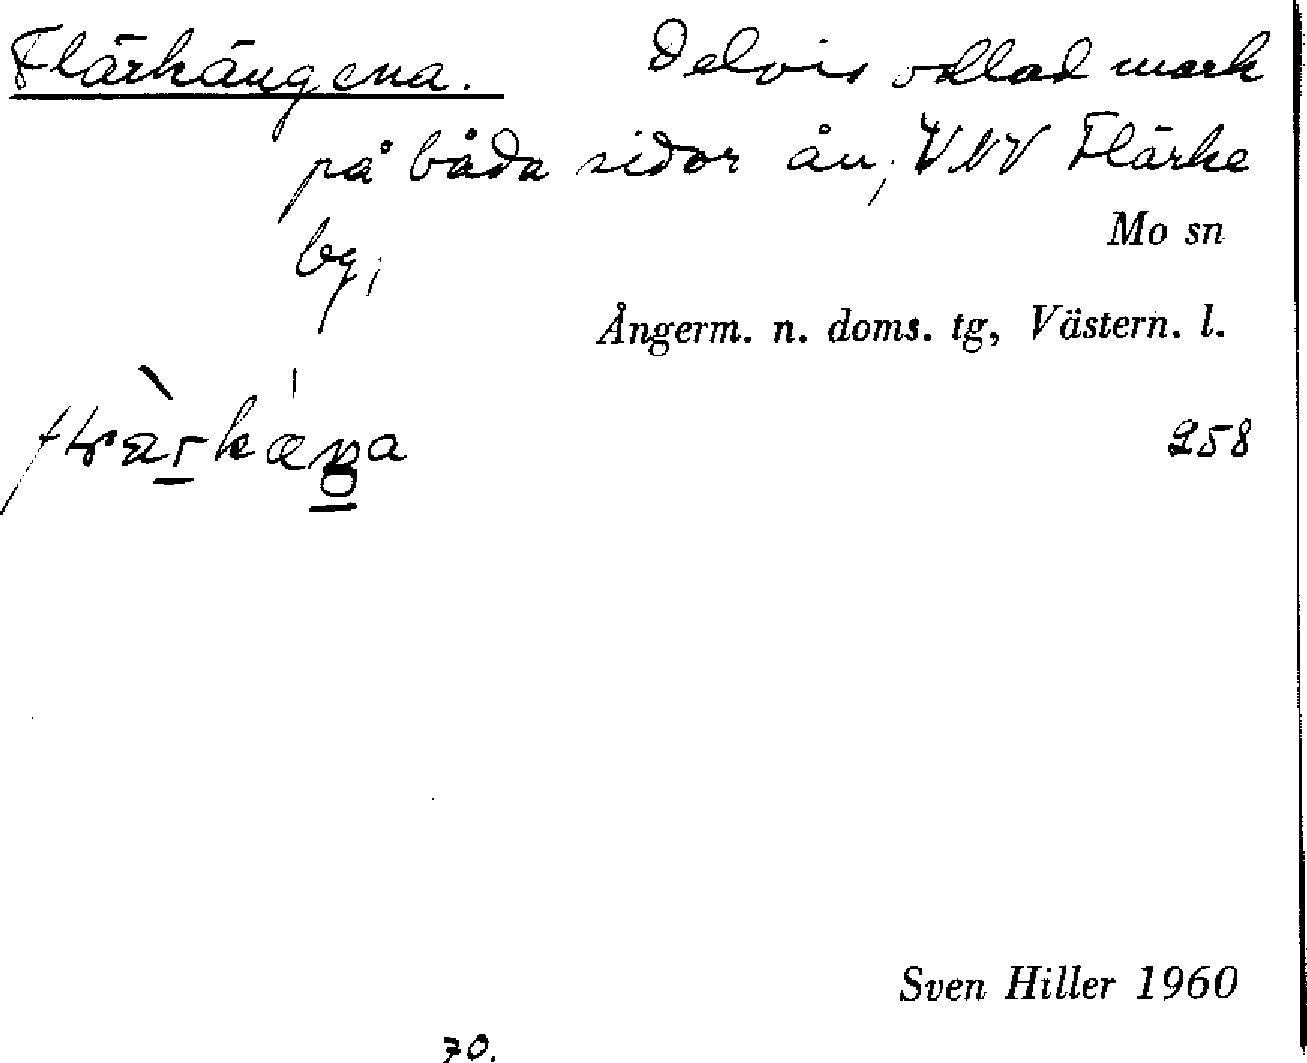 Flärkängena. Delvis odlad mark
på båda sidor ån, VNV Flärke
by,
Mo sn
Ångerm. n. doms. tg, Västern. l.
258
Sven Hiller 1960
70.